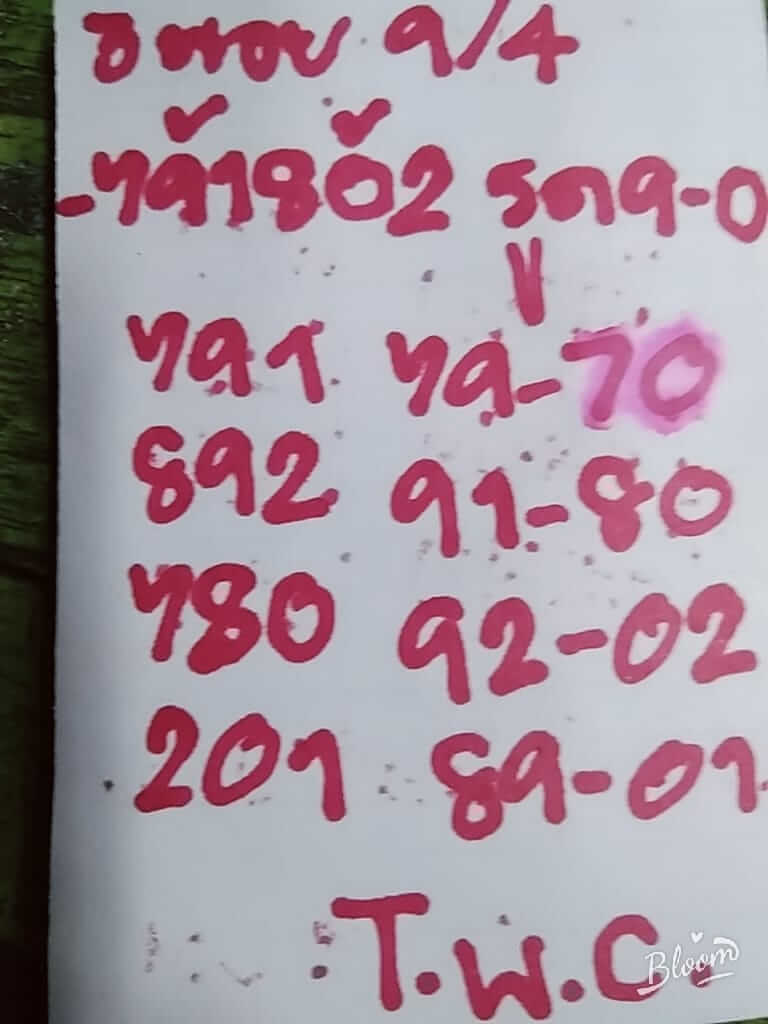 ฮานอย 9/4
-79́1802́ รูด9-0
791 79-70
892 91-80
780 92-02
201 89-01
T.W.C.
Bloom